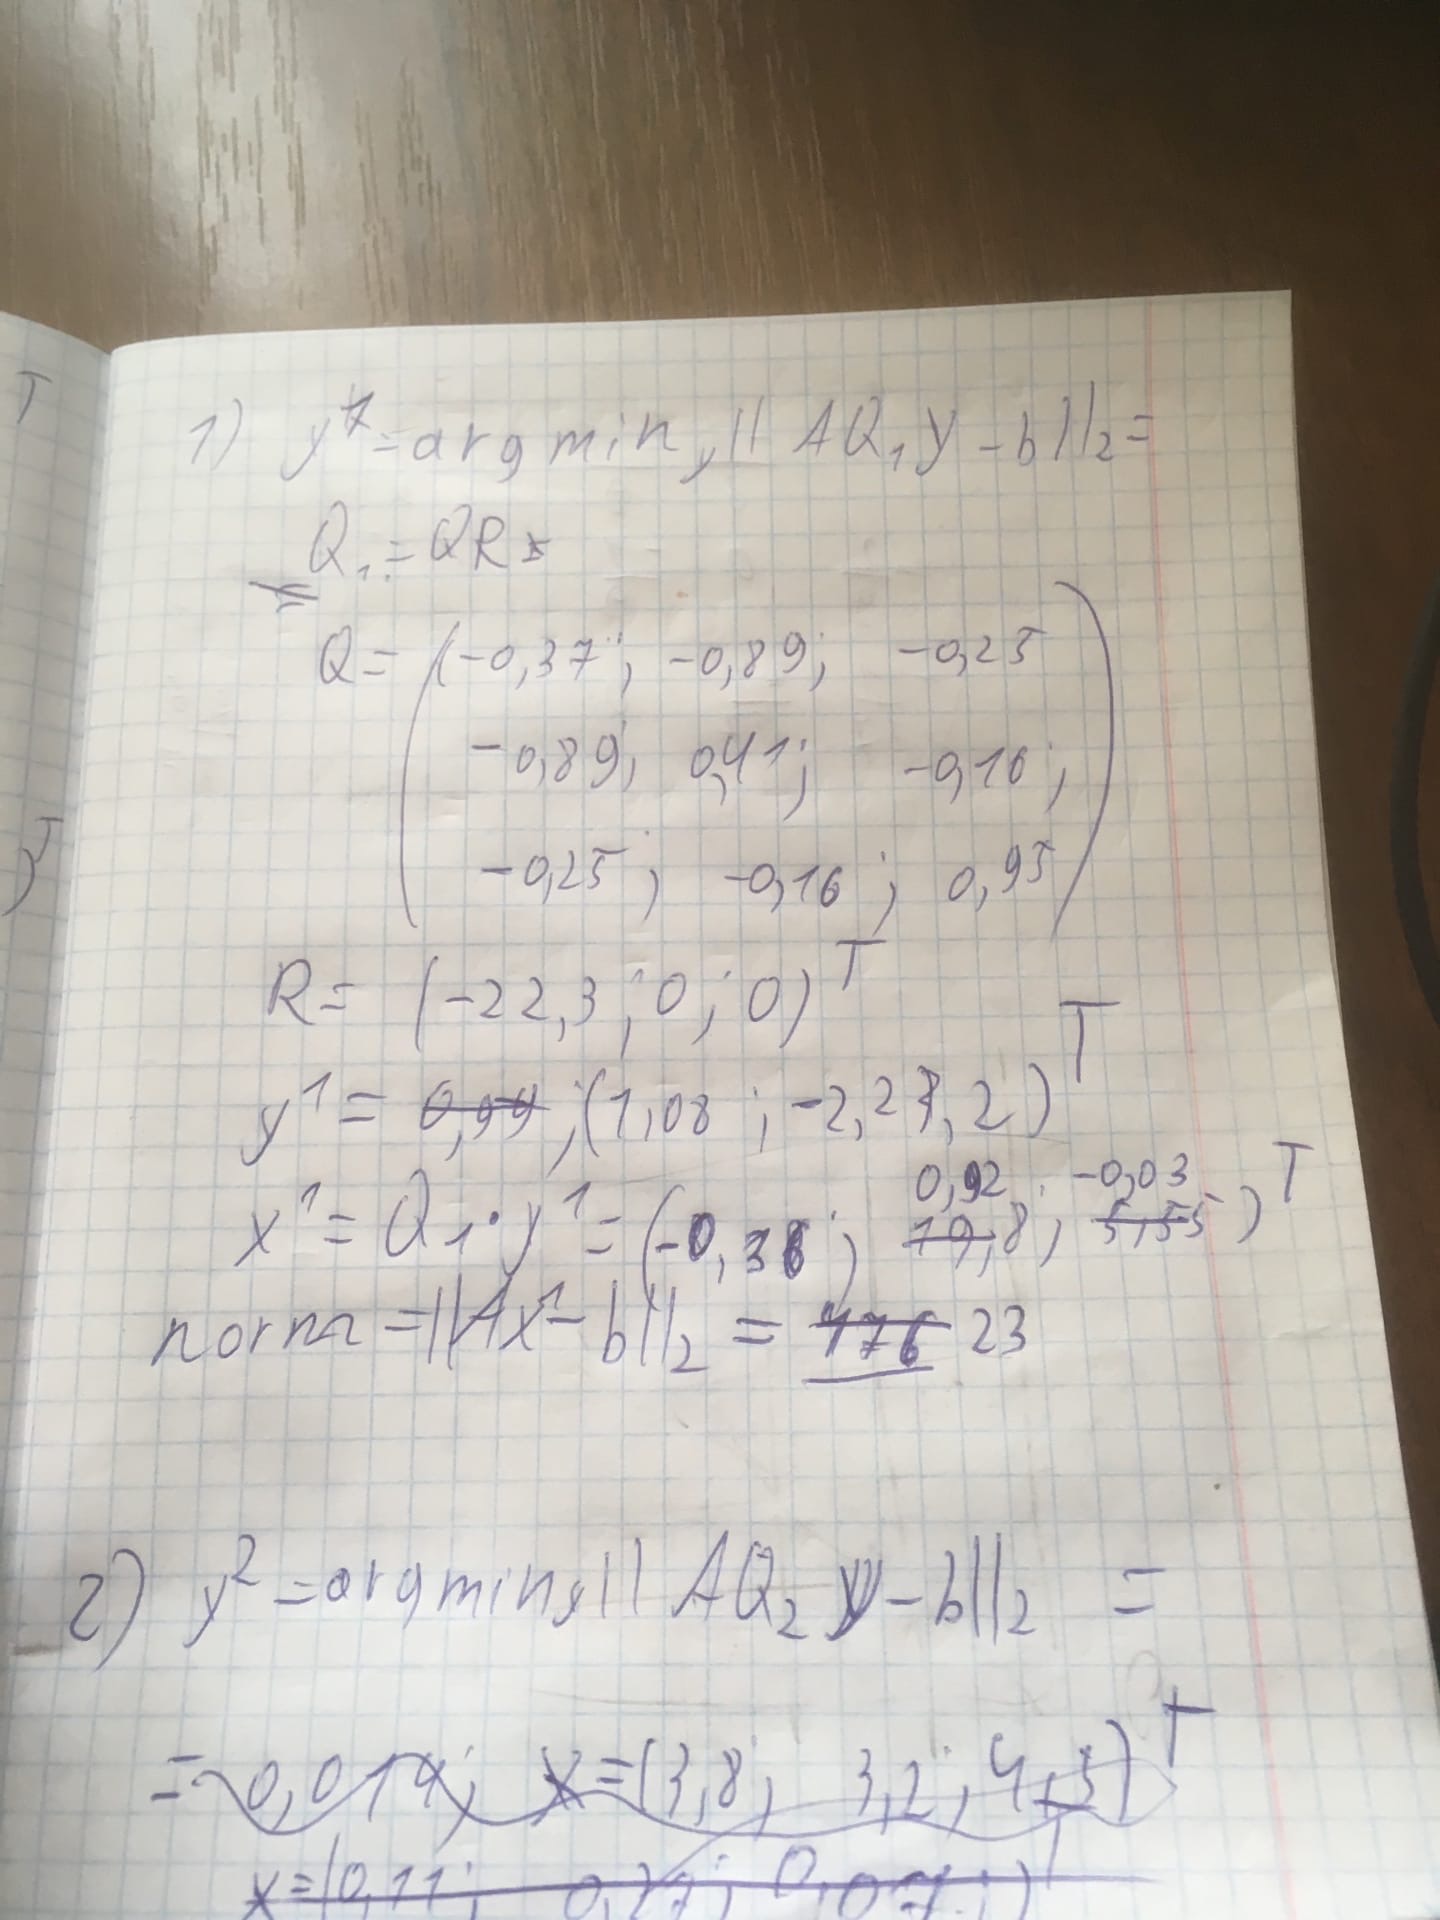 T
)T
1) y¹ = argmin_y || AQ₁y - b||₂ =
Q₁ = QR
Q = (-0,37; -0,89; -0,25
-0,89; 0,41; -0,16;
-0,25; -0,16; 0,95)
R = (-22,3; 0; 0)ᵀ
y¹ = 0,99; (1,08; -2,27,2)ᵀ
0,92; -0,03
x¹ = Q₁·y¹ = (-0,38; 19,8; 5,55)ᵀ
norm = ||Ax¹ - b||₂ = 176 23
2) y² = argmin_y || AQ₂ y - b||₂ =
= 0,014; x = (3,8; 3,2; 4,5)ᵀ
x = (0,11; 0,27; 0,07;)ᵀ